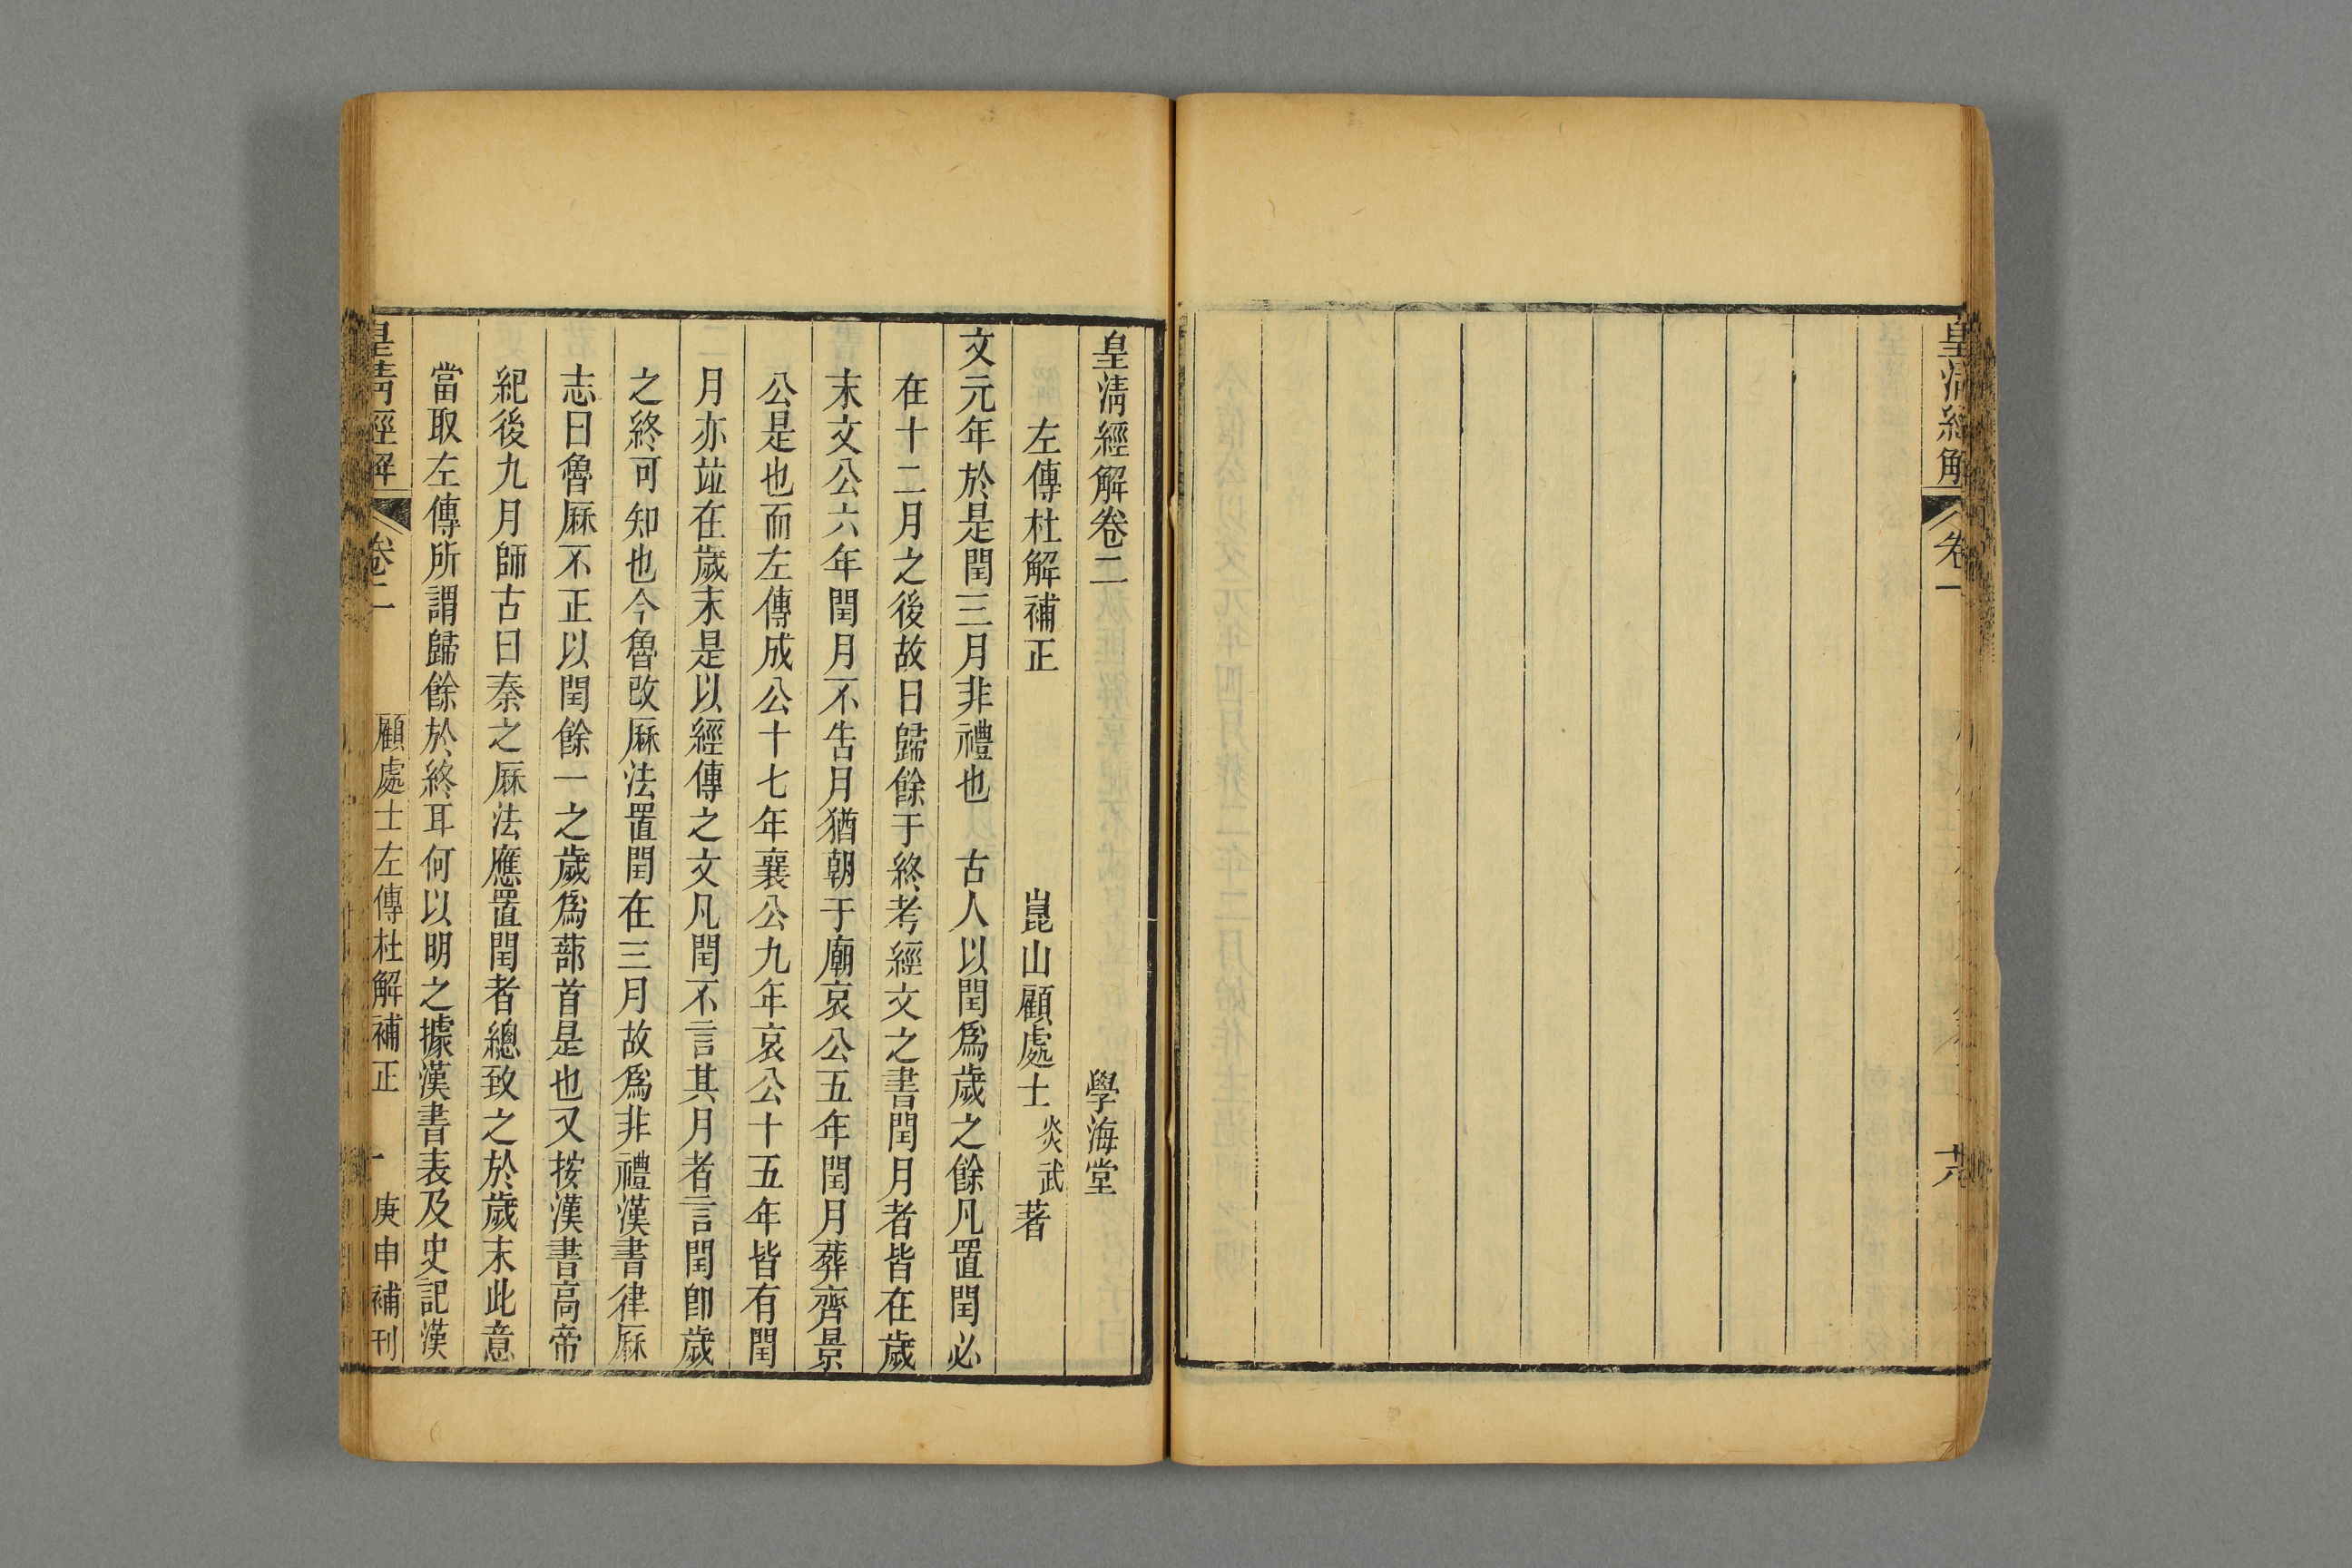 皇清經解
卷一
皇清經解卷二 學海堂
左傳杜解補正 崑山顧處士炎武著
文元年於是閏三月非禮也 古人以閏爲歲之餘凡置閏必
在十二月之後故曰歸餘于終考經文之書閏月者皆在歲
末文公六年閏月不吿月猶朝于廟哀公五年閏月葬齊景
公是也而左傳成公十七年襄公九年哀公十五年皆有閏
月亦竝在歲末是以經傳之文凡閏不言其月者言閏卽歲
之終可知也今魯改厤法置閏在三月故爲非禮漢書律厤
志曰魯厤不正以閏餘一之歲爲蔀首是也又按漢書高帝
紀後九月師古曰秦之厤法應置閏者總致之於歲末此意
當取左傳所謂歸餘於終耳何以明之據漢書表及史記漢
皇清經解 卷二 顧處士左傳杜解補正 一 庚申補刊